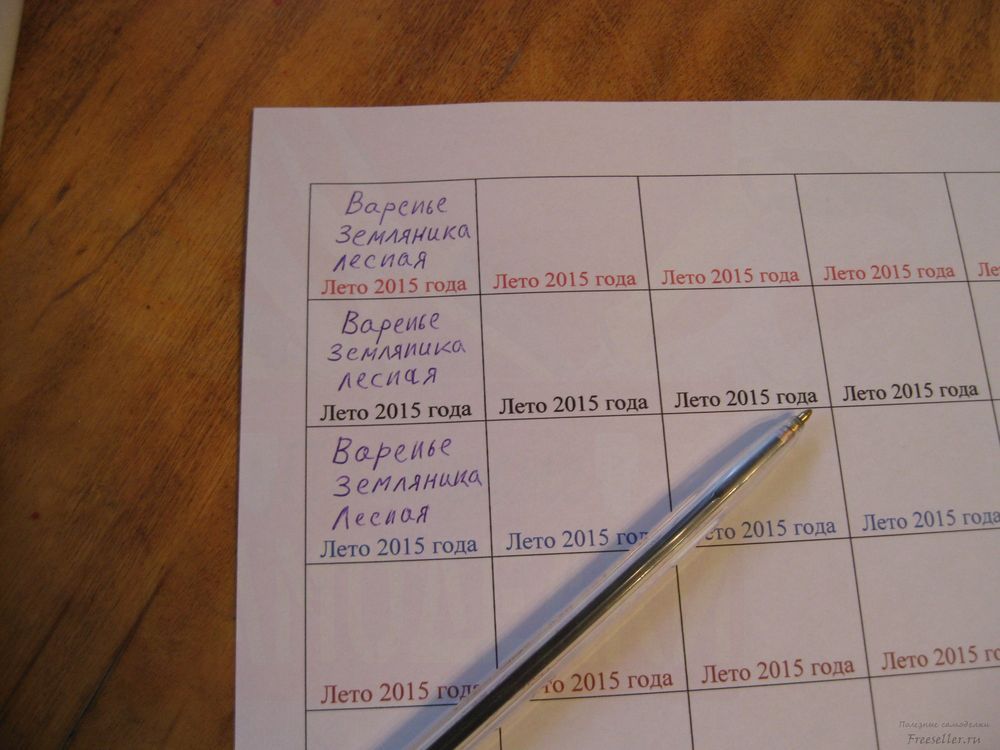 Варенье
Земляника
лесная
Лето 2015 года Лето 2015 года Лето 2015 года Лето 2015 года Ле
Варенье
Земляника
лесная
Лето 2015 года Лето 2015 года Лето 2015 года Лето 2015 года
Варенье
Земляника
Лесная
Лето 2015 года Лето 2015 год ето 2015 года Лето 2015 года
Лето 2015 года то 2015 года Лето 2015 года Лето 2015 го
Полезные самоделки
Freeseller.ru